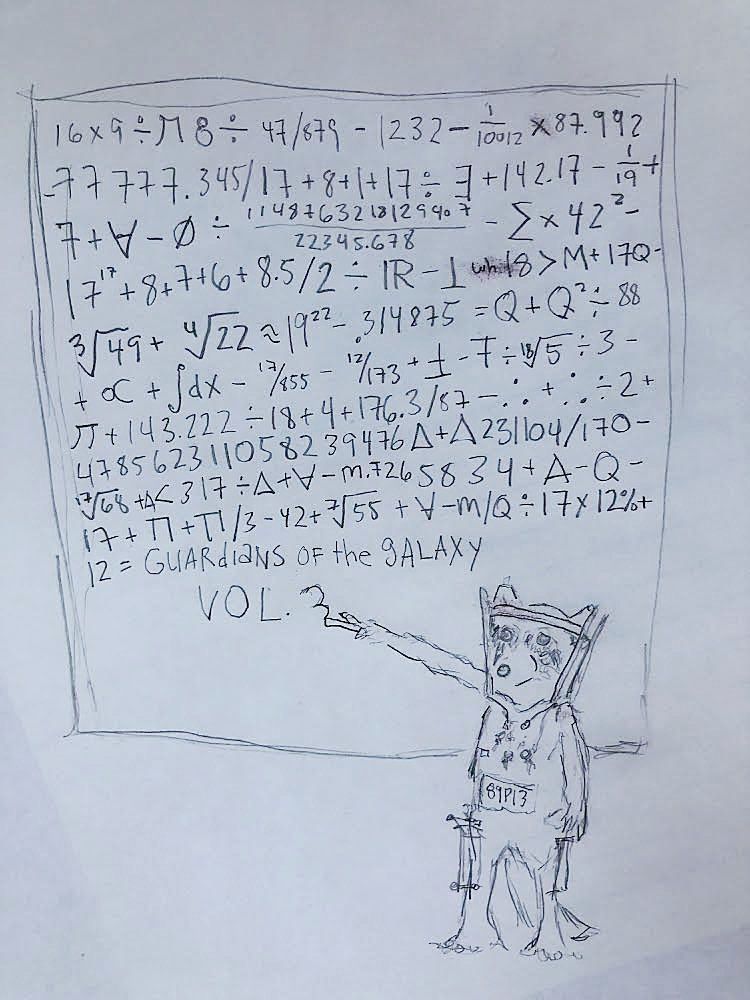 16×9÷π8÷ 47/879 - 1232 - 1/10012 × 87.992
-77777.345/17+8+1+17÷∃+142.17 - 1/19 +
7+∀-∅÷ 1148763218129907/22345.678 - Σ×42² -
17¹⁷+8+7+6+8.5/2÷ℝ-⊥ 8>M+17Q-
∛49+ ∜22≈19²²-.314875=Q+Q²÷88
+∝+∫dx- 17/855 - 12/173 + - 7÷¹⁸√5÷3-
π+143.222÷18+4+176.3/87-∴+∴÷2+
478562311058239476Δ+Δ231104/170-
¹⁷√68+Δ<317÷Δ+∀-m.7265834+A-Q-
17+Π+Π/3-42+⁷√55+∀-m/Q÷17×12%+
12= GUARdiANS OF the gALAXY
VOL. 3
89P13